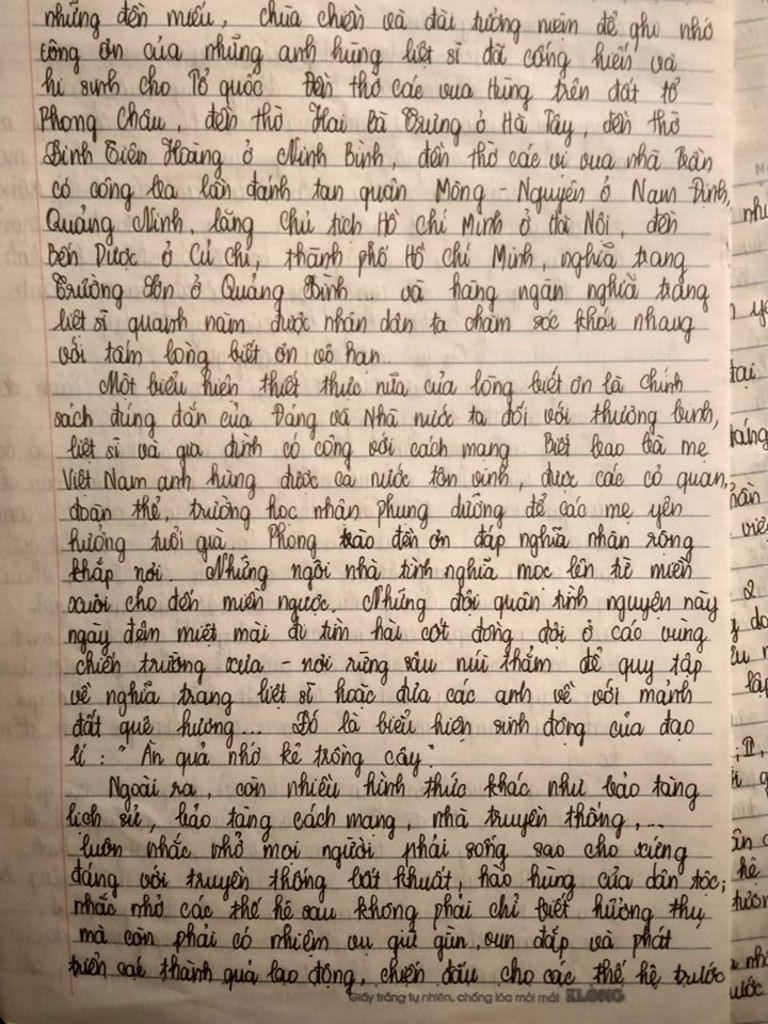 những đền miếu, chùa chiền và đài tưởng niệm để ghi nhớ
công ơn của những anh hùng liệt sĩ đã cống hiến và
hi sinh cho Tổ quốc Đền thờ các vua Hùng trên đất tổ
Phong Châu, đền thờ Hai Bà Trưng ở Hà Tây, đền thờ
Đinh Tiên Hoàng ở Ninh Bình, đền thờ các vị vua nhà Trần
có công ba lần đánh tan quân Mông - Nguyên ở Nam Định,
Quảng Ninh, lăng Chủ tịch Hồ Chí Minh ở Hà Nội, đền
Bến Dược ở Củ Chi, thành phố Hồ Chí Minh, nghĩa trang
Trường Sơn ở Quảng Bình... và hàng ngàn nghĩa trang
liệt sĩ quanh năm được nhân dân ta chăm sóc khói nhang
với tấm lòng biết ơn vô hạn.
Một biểu hiện thiết thực nữa của lòng biết ơn là chính
sách đúng đắn của Đảng và Nhà nước ta đối với thương binh,
liệt sĩ và gia đình có công với cách mạng Biết bao bà mẹ
Việt Nam anh hùng được cả nước tôn vinh, được các cơ quan,
đoàn thể, trường học nhận phụng dưỡng để các mẹ yên
hưởng tuổi già. Phong trào đền ơn đáp nghĩa nhân rộng
khắp nơi. Những ngôi nhà tình nghĩa mọc lên từ miền
xuôi cho đến miền ngược. Những đội quân tình nguyện này
ngày đêm miệt mài đi tìm hài cốt đồng đội ở các vùng
chiến trường xưa - nơi rừng sâu núi thẳm để quy tập
về nghĩa trang liệt sĩ hoặc đưa các anh về với mảnh
đất quê hương... Đó là biểu hiện sinh động của đạo
lí : "Ăn quả nhớ kẻ trồng cây".
Ngoài ra, còn nhiều hình thức khác như bảo tàng
lịch sử, bảo tàng cách mạng, nhà truyền thống,...
luôn nhắc nhở mọi người phải sống sao cho xứng
đáng với truyền thống bất khuất, hào hùng của dân tộc;
nhắc nhở các thế hệ sau không phải chỉ biết hưởng thụ
mà còn phải có nhiệm vụ giữ gìn, vun đắp và phát
triển các thành quả lao động, chiến đấu cho các thế hệ trước
Giấy trắng tự nhiên, chống lóa mỏi mắt KLONG